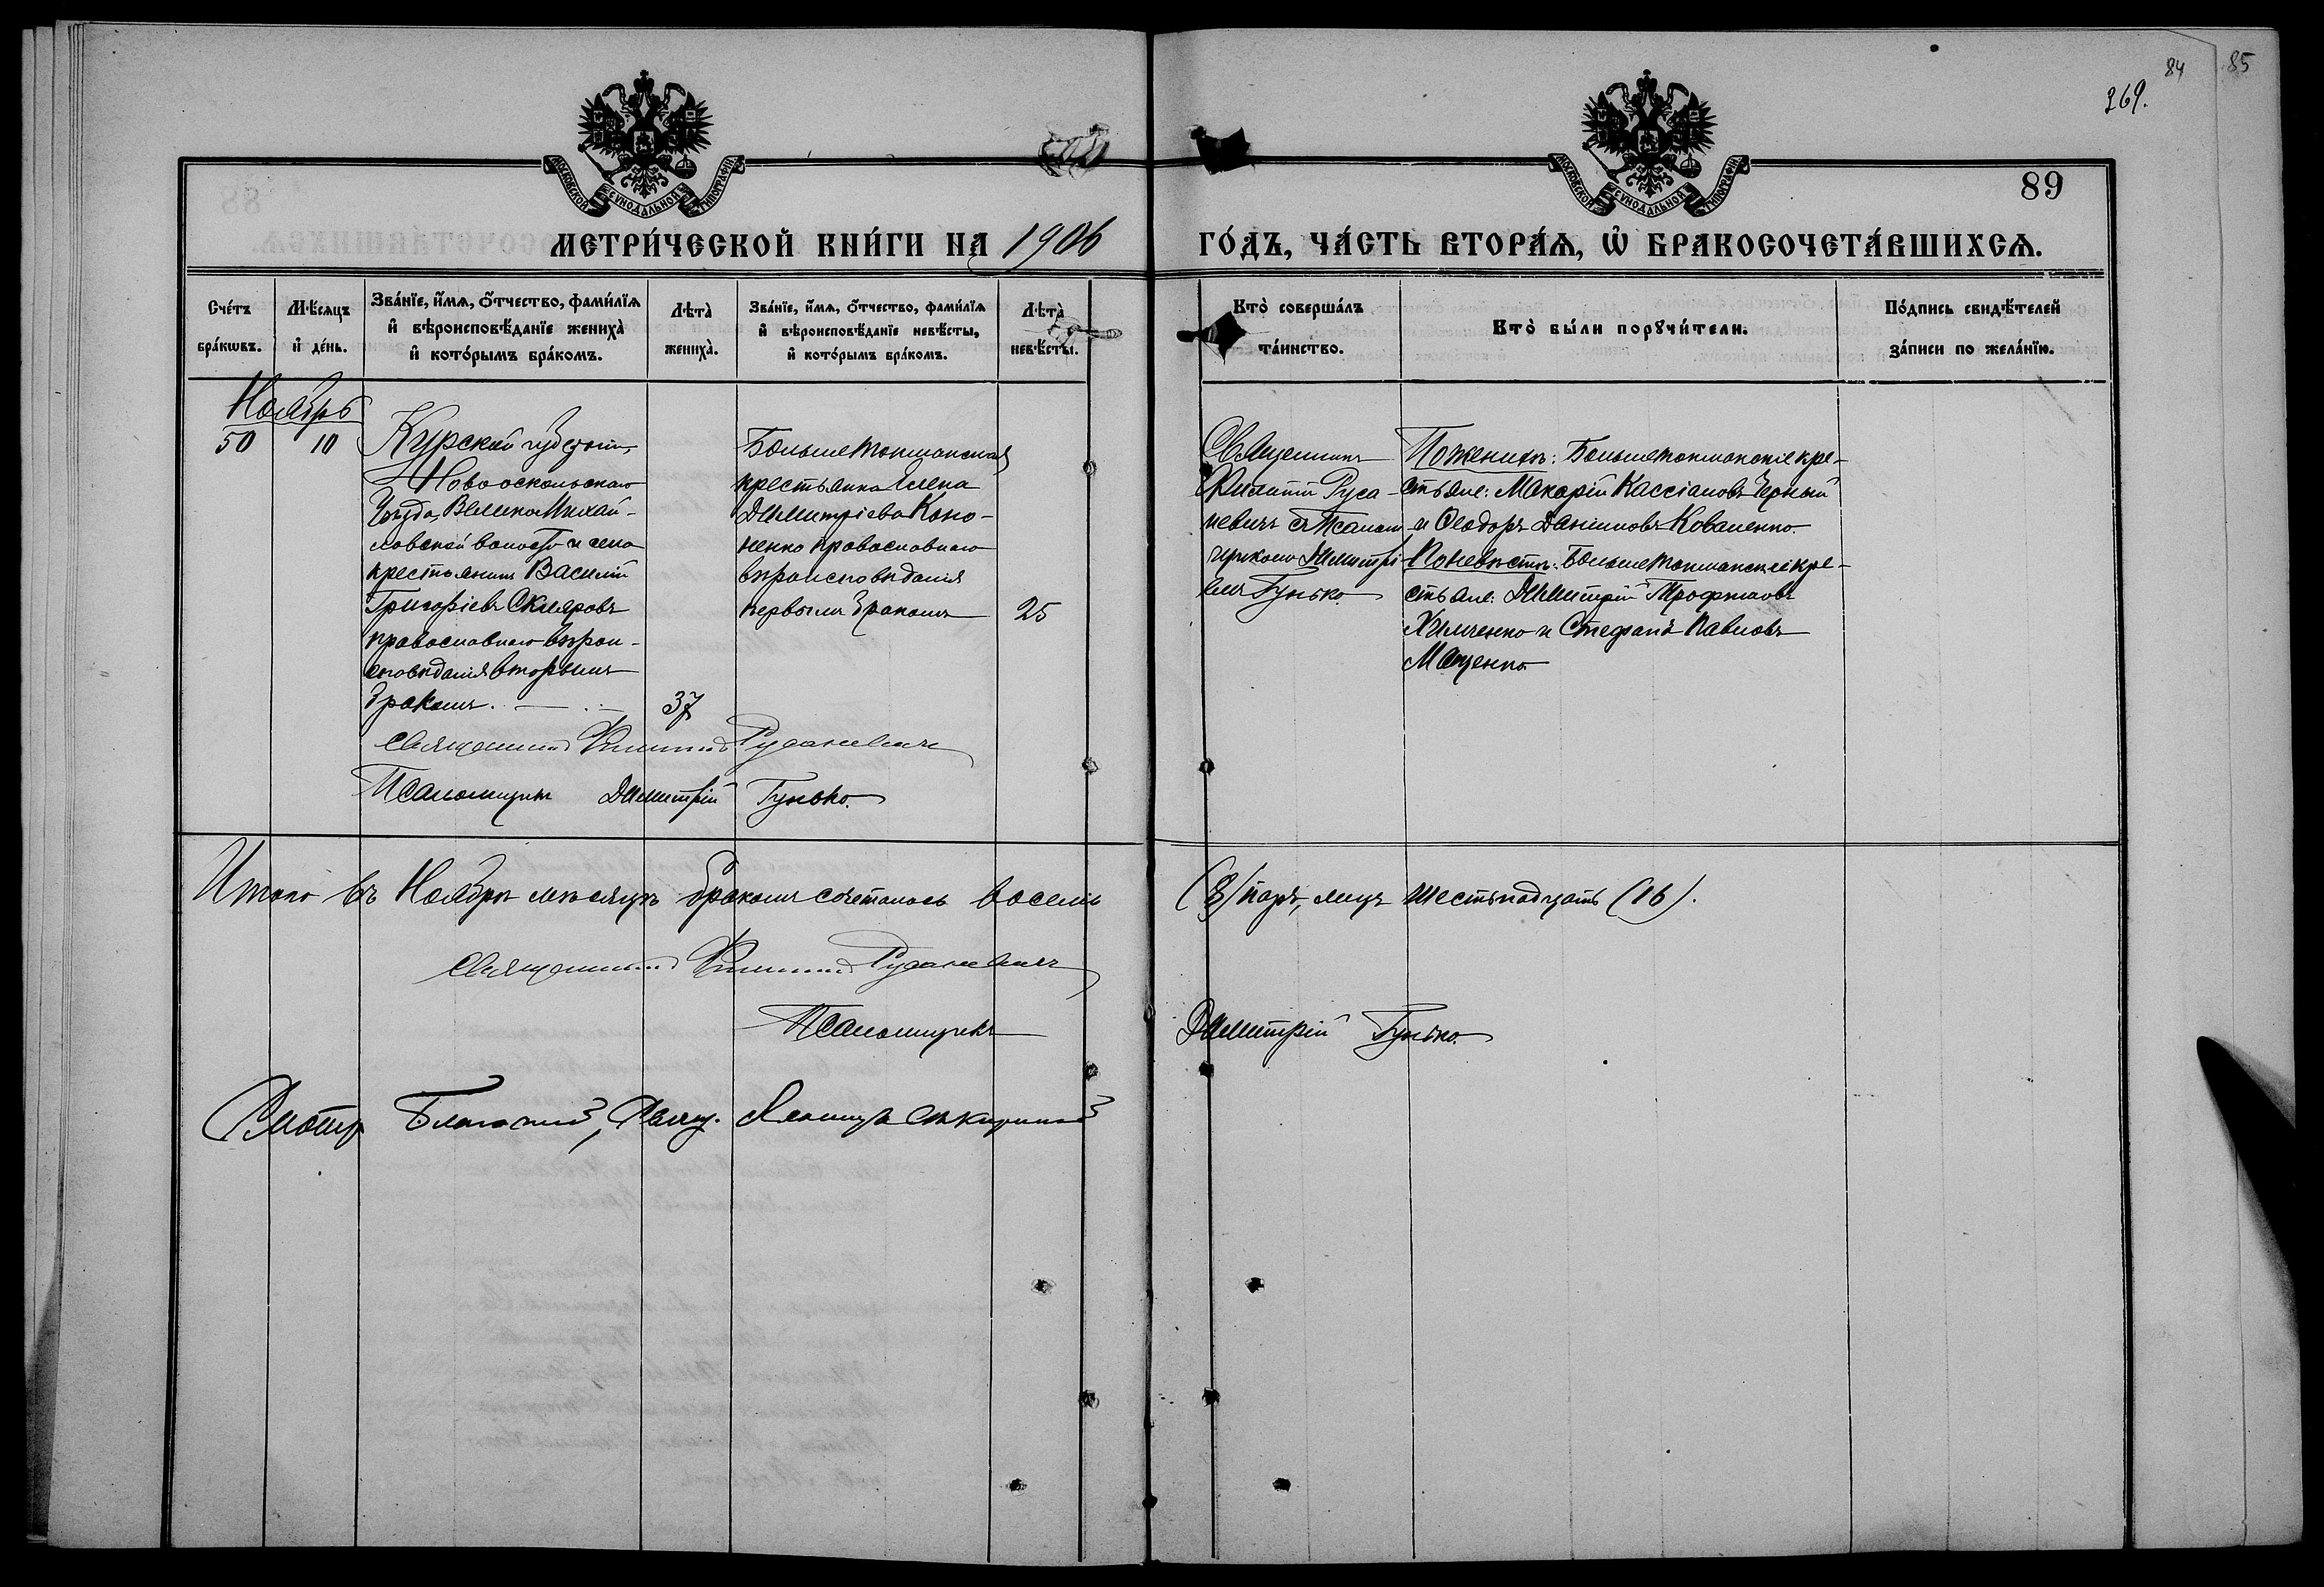 84 85
269.
МОСКОВСКОЙ СѴНОДАЛЬНОЙ ТИПОГРАФІИ
МОСКОВСКОЙ СѴНОДАЛЬНОЙ ТИПОГРАФІИ
89
МЕТРИ́ЧЕСКОЙ КНИ́ГИ НА 1906
ГО́ДЪ, ЧА́СТЬ ВТОРА́Ѧ, Ѽ БРАКОСОЧЕТА́ВШИХСѦ.
Сче́тъ
бра́кѡвъ.
Мѣ́сѧцъ
и҆ де́нь.
Зва́нїе, и҆́мѧ, ѻ҆́тчество, фами́лїѧ
и҆ вѣроисповѣ́данїе жениха̀
и҆ кото́рымъ бра́комъ.
Лѣта̀
жениха̀.
Зва́нїе, и҆́мѧ, ѻ҆́тчество, фами́лїѧ
и҆ вѣроисповѣ́данїе невѣ́сты,
и҆ кото́рымъ бра́комъ.
Лѣта̀
невѣ́сты.
Кто̀ соверша́лъ
та́инство.
Кто̀ бы́ли порꙋчи́тели.
По́дпись свидѣ́телей
за́писи по жела́нїю.
Ноябрь
50
10
Курской губерніи,
Новооскольскаго
Уѣзда, Велико Михай-
ловской волости и села
крестьянинъ Василій
Григоріевъ Скляровъ
православнаго вѣрои-
сповѣданія вторымъ
бракомъ.
37
Большетокмакская
крестьянка Елена
Димитріева Коно-
ненко православнаго
вѣроисповѣданія
первымъ бракомъ
25
Священникъ
Филиппъ Руса-
невичъ съ Псалом
щикомъ Димитрі
емъ Гунько.
По женихѣ: Большетокмакскіе кре-
стьяне: Макарій Кассіановъ Черный
и Ѳеодоръ Даніиловъ Коваленко.
По невѣстѣ: Большетокмакскіе кре-
стьяне: Димитрій Трофимовъ
Химченко и Стефанъ Павловъ
Маценко
Священникъ Филиппъ Русаневичъ
Псаломщикъ Димитрій Гунько.
Итого въ Ноябрѣ мѣсяцѣ бракомъ сочеталось восемь
(8) паръ, лицъ шестьнадцать (16).
Священникъ Филиппъ Русаневичъ
Псаломщикъ
Димитрій Гунько.
Благочин, Свящ.